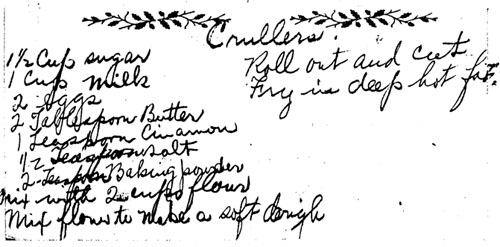 Crullers.
1 1/2 Cup sugar
1 Cup Milk
2 Eggs
2 Tablespoon Butter
1 Teaspoon Cinnamon
1/2 Teaspoon salt
2 Teaspoon Baking powder
Mix with 2 cups flour
Mix flour to make a soft dough
Roll out and cut
Fry in deep hot fat.